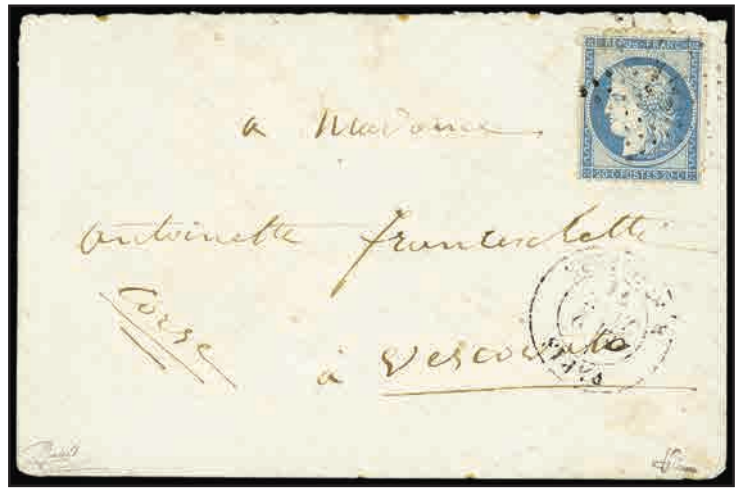 REPUB. FRANC.
20 C. POSTES 20 C.
a Madame
antoinette franceschetti
Corse
à Vescovato
PARIS